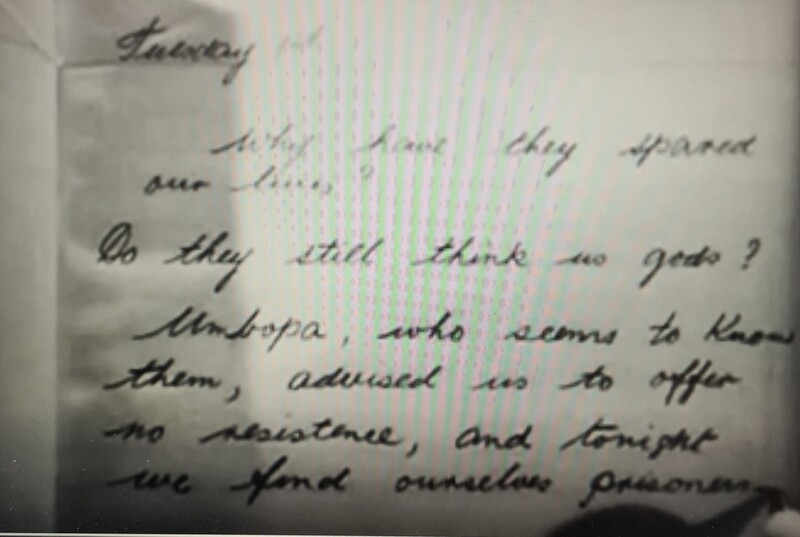 Tuesday
Why have they spared
our lives?
Do they still think us gods?
Umbopa, who seems to know
them, advised us to offer
no resistence, and tonight
we find ourselves prisoners